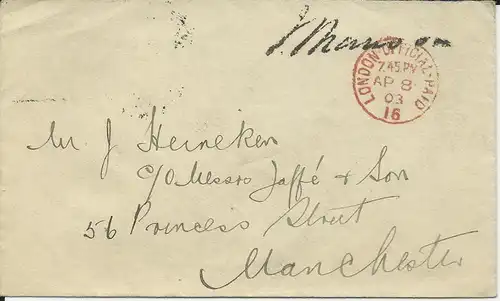 LONDON·OFFICIAL·PAID
7.45 PM
AP 8
03
16
Mr J Heineken
c/o Messrs Jaffé & Son
56 Princess Street
Manchester